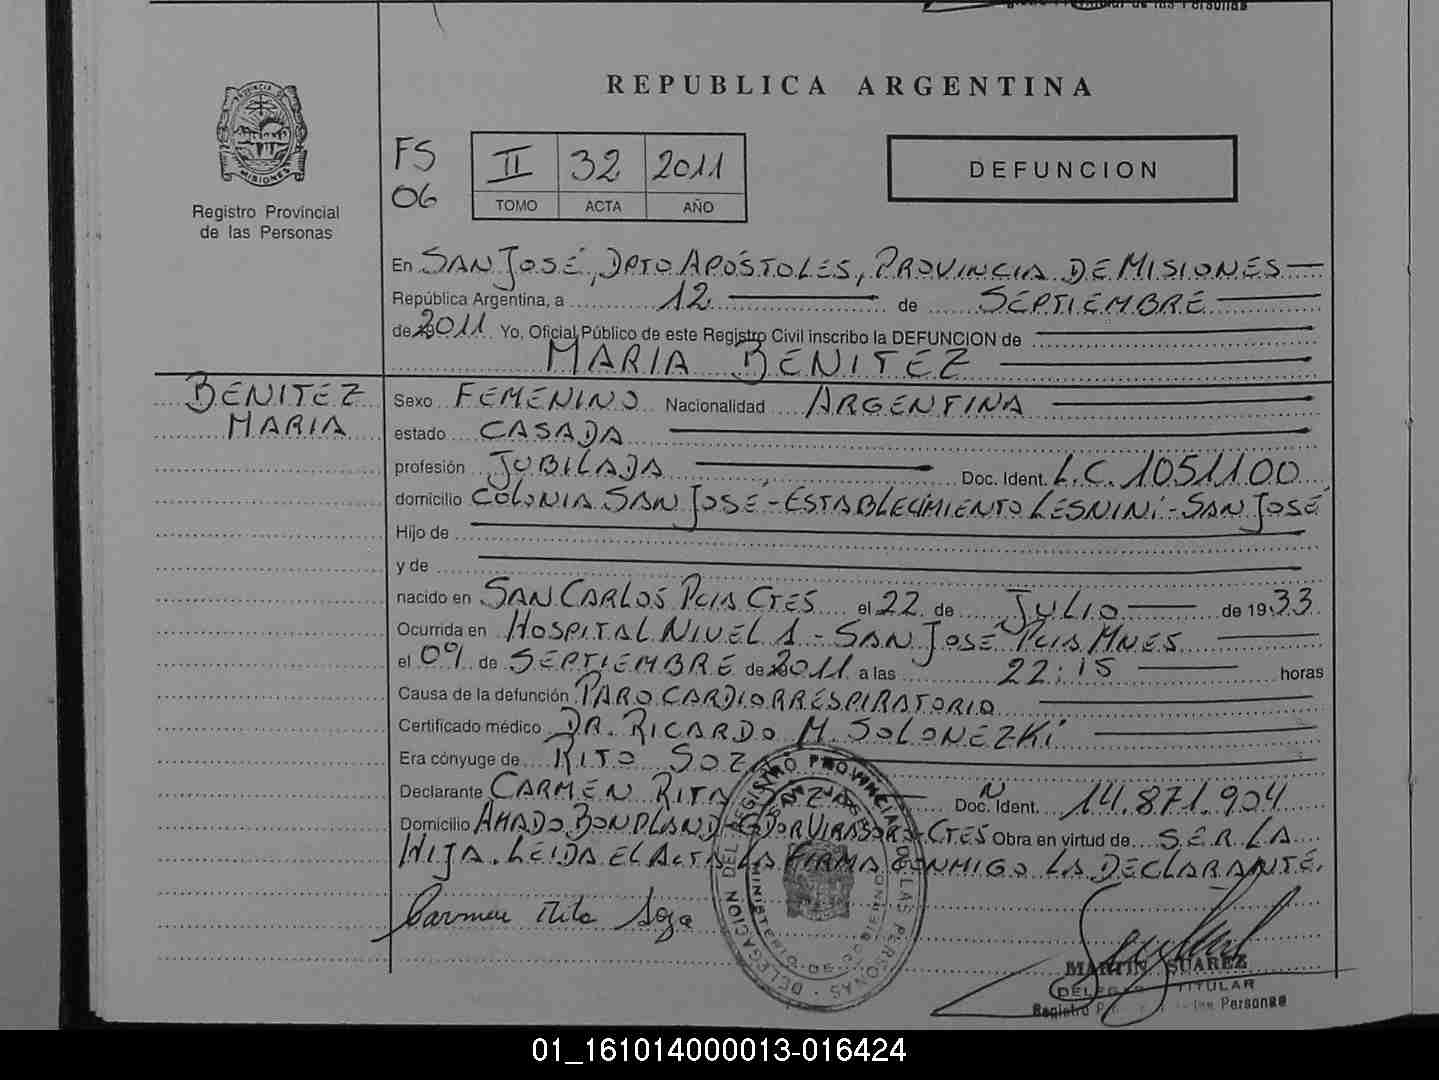 REPUBLICA ARGENTINA
PROVINCIA DE
MISIONES
Registro Provincial
de las Personas
FS
06
II 32 2011
TOMO ACTA AÑO
DEFUNCION
En SAN JOSÉ, DPTO APÓSTOLES, PROVINCIA DE MISIONES
República Argentina, a 12 de SEPTIEMBRE
de 2011 Yo, Oficial Público de este Registro Civil inscribo la DEFUNCION de
MARIA BENITEZ
BENITEZ
MARIA
Sexo FEMENINO Nacionalidad ARGENTINA
estado CASADA
profesión JUBILADA Doc. Ident. L.C. 1051100
domicilio COLONIA SAN JOSÉ - ESTABLECIMIENTO LESNINI - SAN JOSÉ
Hijo de
y de
nacido en SAN CARLOS PCIA CTES el 22 de JULIO de 1933
Ocurrida en HOSPITAL NIVEL 1 - SAN JOSE PCIA MNES
el 09 de SEPTIEMBRE de 2011 a las 22:15 horas
Causa de la defunción PARO CARDIORRESPIRATORIO
Certificado médico DR. RICARDO M. SOLONEZKI
Era cónyuge de RITO SOZ
Declarante CARMEN RITA Doc. Ident. N 14.871.904
Domicilio AMADO BONPLAND - GDOR VIRASORO - CTES Obra en virtud de SER LA
HIJA. LEIDA EL ACTA LA FIRMA CONMIGO LA DECLARANTE.
Carmen Rita
DELEGACION DEL REGISTRO PROVINCIAL DE LAS PERSONAS
SAN JOSE
MINISTERIO DE GOBIERNO
MARTIN SUAREZ
TITULAR
Registro Personas
01_161014000013-016424